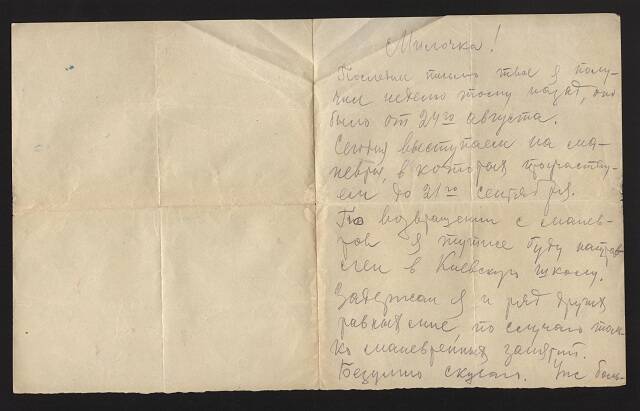 Милочка!
Последнее письмо твое я полу-
чил неделю тому назад, оно
было от 24го августа.
Сегодня выступаем на ма-
невры, в которых проучаству-
ем до 21го сентября.
По возвращении с манев-
ров я тут же буду направ-
лен в Киевскую школу.
Задержан я и ряд других
равных мне, по случаю толь-
ко маневренных занятий.
Безумно скучаю. Уже боль-